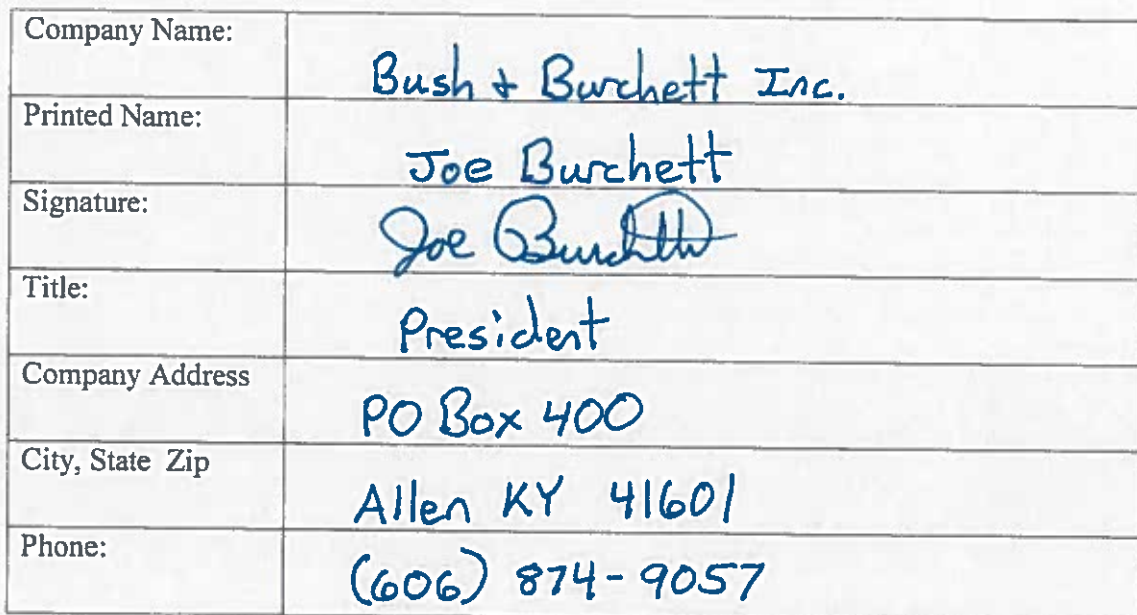 Company Name:
Bush + Burchett Inc.
Printed Name:
Joe Burchett
Signature:
Joe Burchett
Title:
President
Company Address
PO Box 400
City, State Zip
Allen KY 41601
Phone:
(606) 874-9057